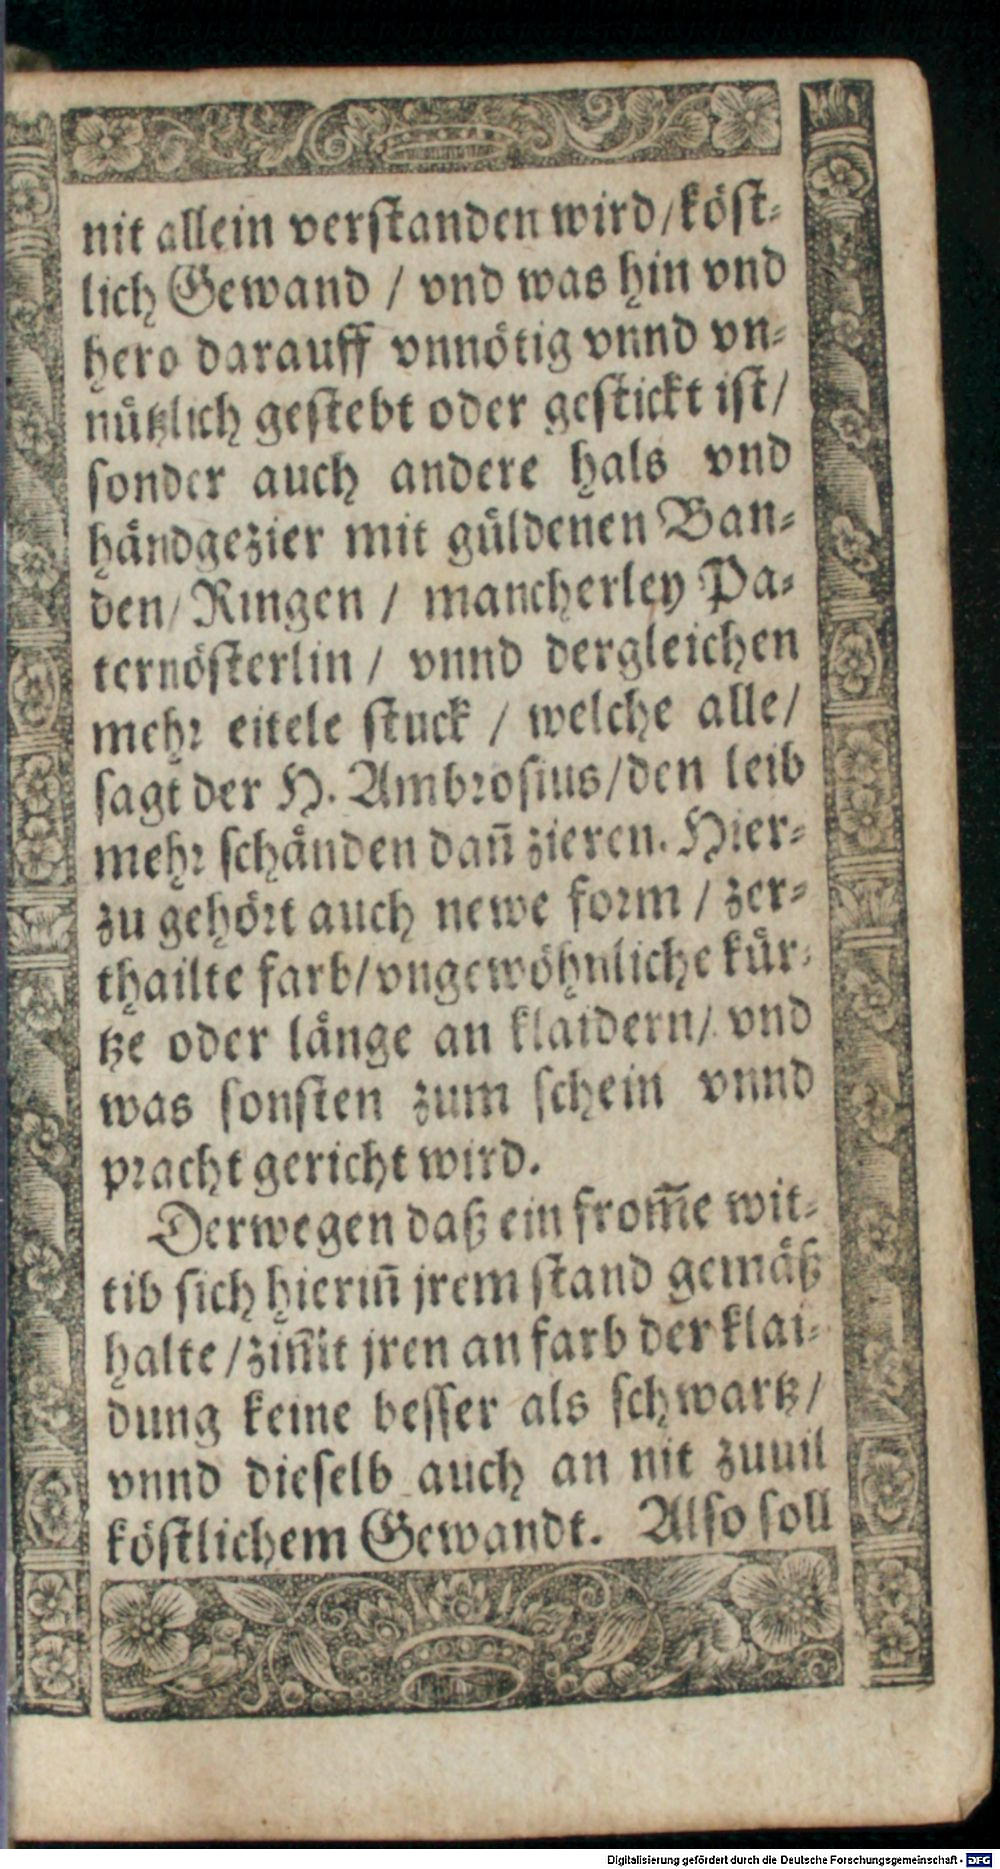 nit allein verstanden wird/köst-
lich Gewand / vnd was hin vnd
hero darauff vnnötig vnnd vn-
nützlich gestebt oder gestickt ist/
sonder auch andere hals vnd
händgezier mit güldenen Ban-
den/ Ringen / mancherley Pa-
ternösterlin / vnnd dergleichen
mehr eitele stuck / welche alle/
sagt der H. Ambrosius/den leib
mehr schänden dañ zieren. Hier-
zu gehört auch newe form / zer-
thailte farb/vngewöhnliche kür-
tze oder länge an klaidern/ vnd
was sonsten zum schein vnnd
pracht gericht wird.
Derwegen daß ein from̃e wit-
tib sich hieriñ jrem stand gemäß
halte/zim̃it jren an farb der klai-
dung keine besser als schwartz/
vnnd dieselb auch an nit zuuil
köstlichem Gewandt. Also soll
Digitalisierung gefördert durch die Deutsche Forschungsgemeinschaft - DFG